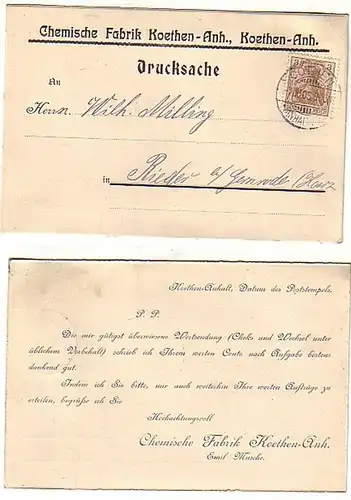 Chemische Fabrik Koethen-Anh., Koethen-Anh.
Drucksache
An
Herrn Wilh. Milling
in Rieder b/ Gernrode/Harz
Koethen-Anhalt, Datum des Poststempels.
P. P.
Die mir gütigst überwiesene Wertsendung (Cheks und Wechsel unter
üblichem Vorbehalt) schrieb ich Ihrem werten Conto nach Aufgabe bestens
dankend gut.
Indem ich Sie bitte, mir auch weiterhin Ihre werten Aufträge zu
erteilen, begrüße ich Sie
Hochachtungsvoll
Chemische Fabrik Koethen-Anh.
Emil Musche.